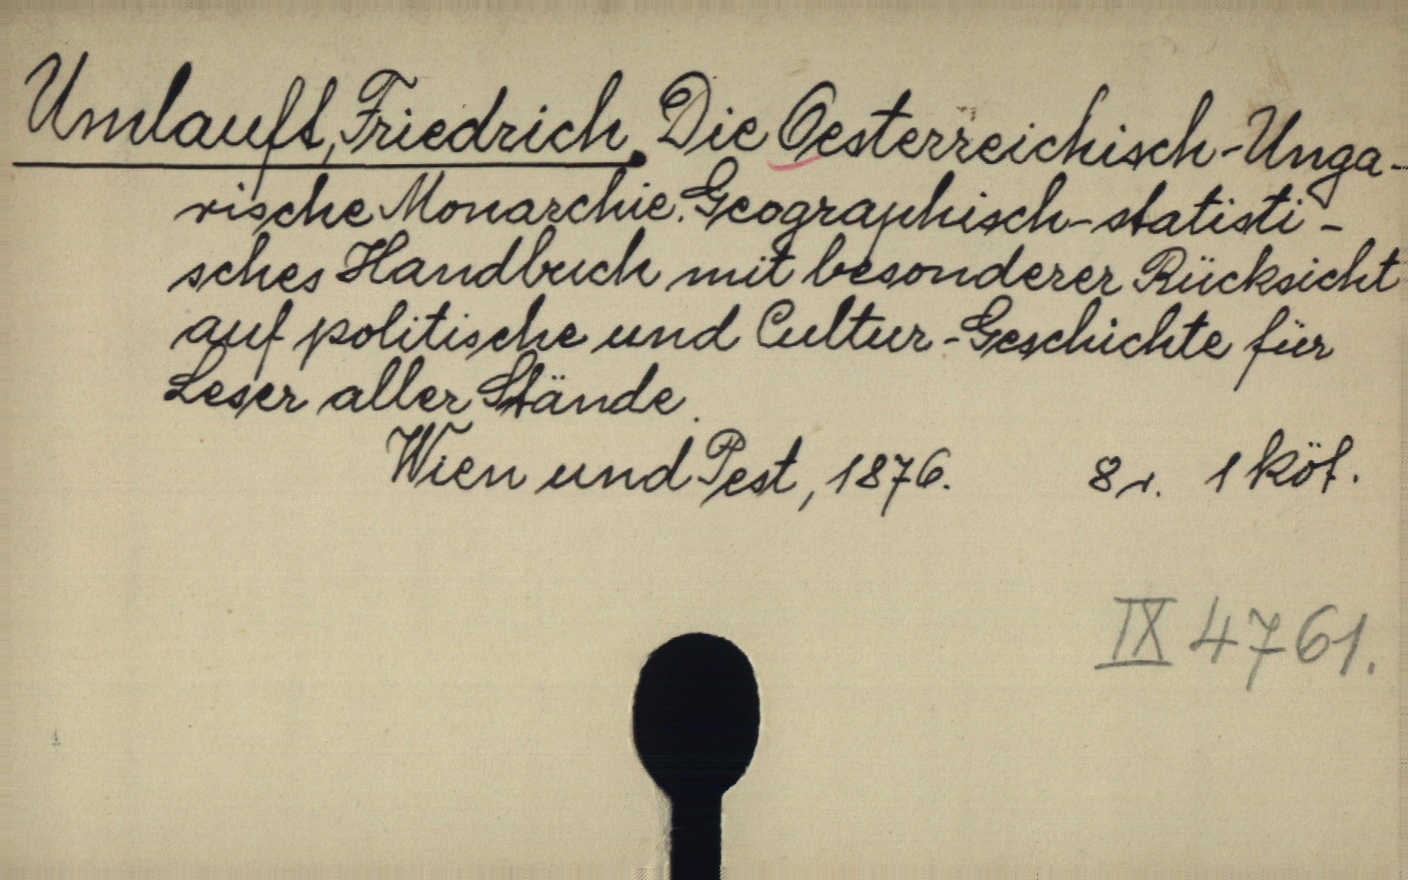 Umlauft, Friedrich. Die Oesterreichisch-Unga-
rische Monarchie. Geographisch-statisti-
sches Handbuch mit besonderer Rücksicht
auf politische und Cultur-Geschichte für
Leser aller Stände.
Wien und Pest, 1876. 8r. 1 köt.
IX 4761.